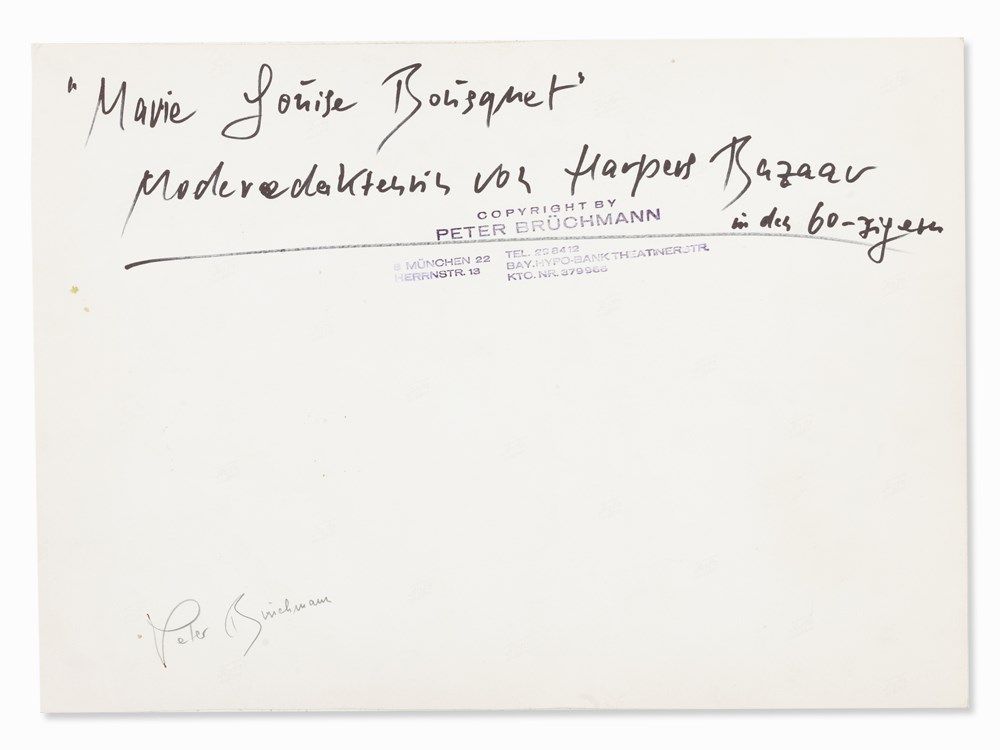 "Marie Louise Bousquet"
Moderedakteurin von Harpers Bazaar
in den 60-zigern
COPYRIGHT BY
PETER BRÜCHMANN
8 MÜNCHEN 22
HERRNSTR. 13
TEL. 298412
BAY. HYPO-BANK THEATINERSTR.
KTO. NR. 379966
Peter Brüchmann